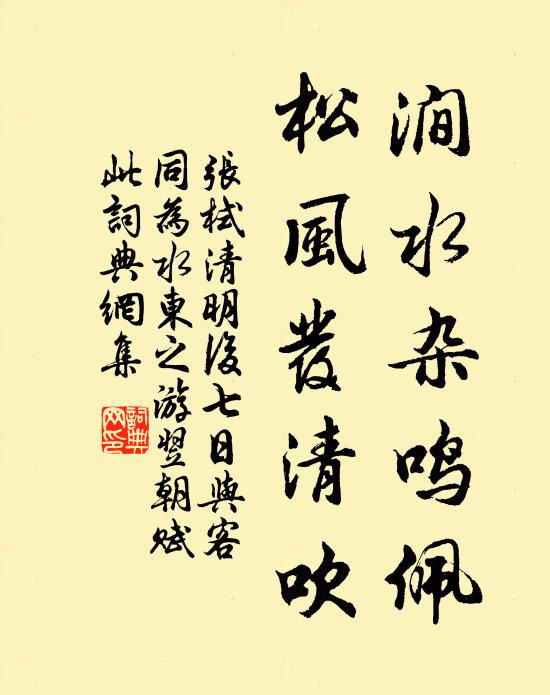 涧水杂鸣佩
松風發清吹
張栻清明後七日與客
同為水東之游翌朝賦
此詞典網集
詞典网印